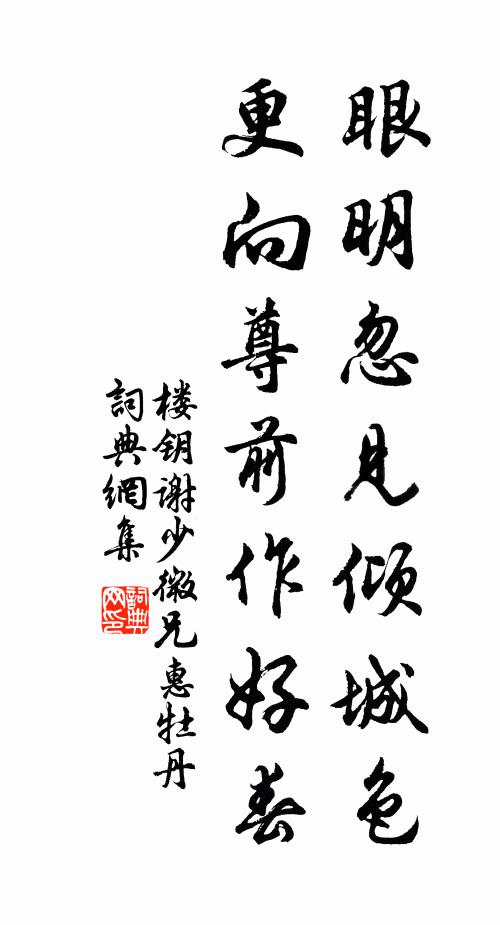 眼明忽见倾城色
更向尊前作好春
楼钥谢少微兄惠牡丹
詞典網集
詞典网印